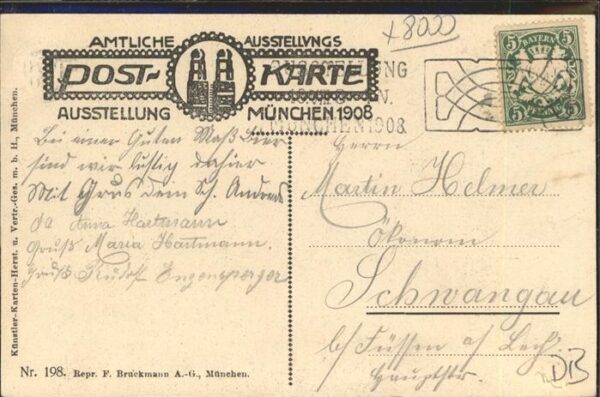 +8000
AMTLICHE AUSSTELLUNGS
POST- KARTE
AUSSTELLUNG MÜNCHEN 1908
AUSSTELLUNG
MÜNCHEN 1908
BAYERN
5 5
5 5
Bei einer Guten Maß Bier
sind wir lustig dahier
Mit Grus dein Sch. Andreas
Anna Hartmann
Gruß Maria Hartmann.
Gruß Rudolf
Herrn
Martin Helmer
Ökonom
Schwangau
b/ Füssen a/ Lech
Hauptstr.
DiB
Künstler-Karten-Herst. u. Vertr.-Ges. m. b. H., München.
Nr. 198. Repr. F. Bruckmann A.-G., München.